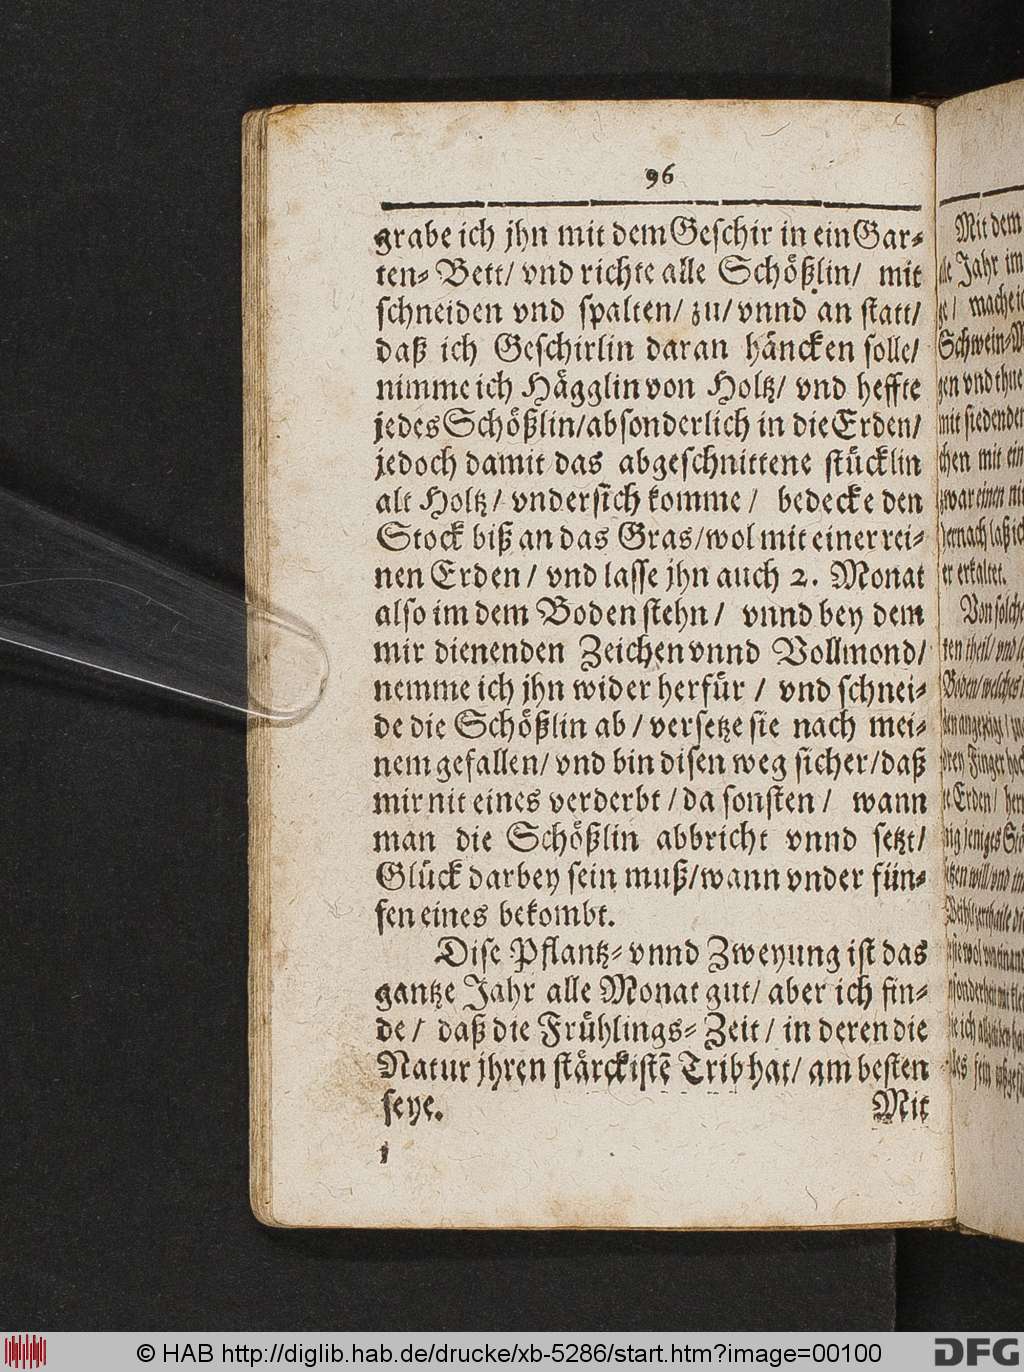 96
grabe ich jhn mit dem Geschir in ein Gar⸗
ten⸗ Bett/ vnd richte alle Schößlin/ mit
schneiden vnd spalten/ zu/ vnnd an statt/
daß ich Geschirlin daran häncken solle/
nimme ich Hägglin von Holtz/ vnd heffte
jedes Schößlin/absonderlich in die Erden/
jedoch damit das abgeschnittene stücklin
alt Holtz/ vndersich komme/ bedecke den
Stock biß an das Gras/wol mit einer rei⸗
nen Erden/ vnd lasse jhn auch 2. Monat
also im dem Boden stehn/ vnnd bey dem
mir dienenden Zeichen vnnd Vollmond/
nemme ich jhn wider herfür/ vnd schnei⸗
de die Schößlin ab/ versetze sie nach mei⸗
nem gefallen/ vnd bin disen weg sicher/daß
mir nit eines verderbt/da sonsten/ wann
man die Schößlin abbricht vnnd setzt/
Glück darbey sein muß/wann vnder fün⸗
fen eines bekombt.
Dise Pflantz⸗ vnnd Zweyung ist das
gantze Jahr alle Monat gut/ aber ich fin⸗
de/ daß die Frühlings⸗ Zeit/ in deren die
Natur jhren stärckistẽ Trib hat/ am besten
seye. Mit
Mit dem
Jahr im
Schwein⸗
vnd thue
mit siedenden
mit ein
einen
laß ich
er erkaltet.
Von solche
theil/ vnd
Boden/welches
Finger hoch
Erden/
jeniges
will/vnd
© HAB http://diglib.hab.de/drucke/xb-5286/start.htm?image=00100
DFG